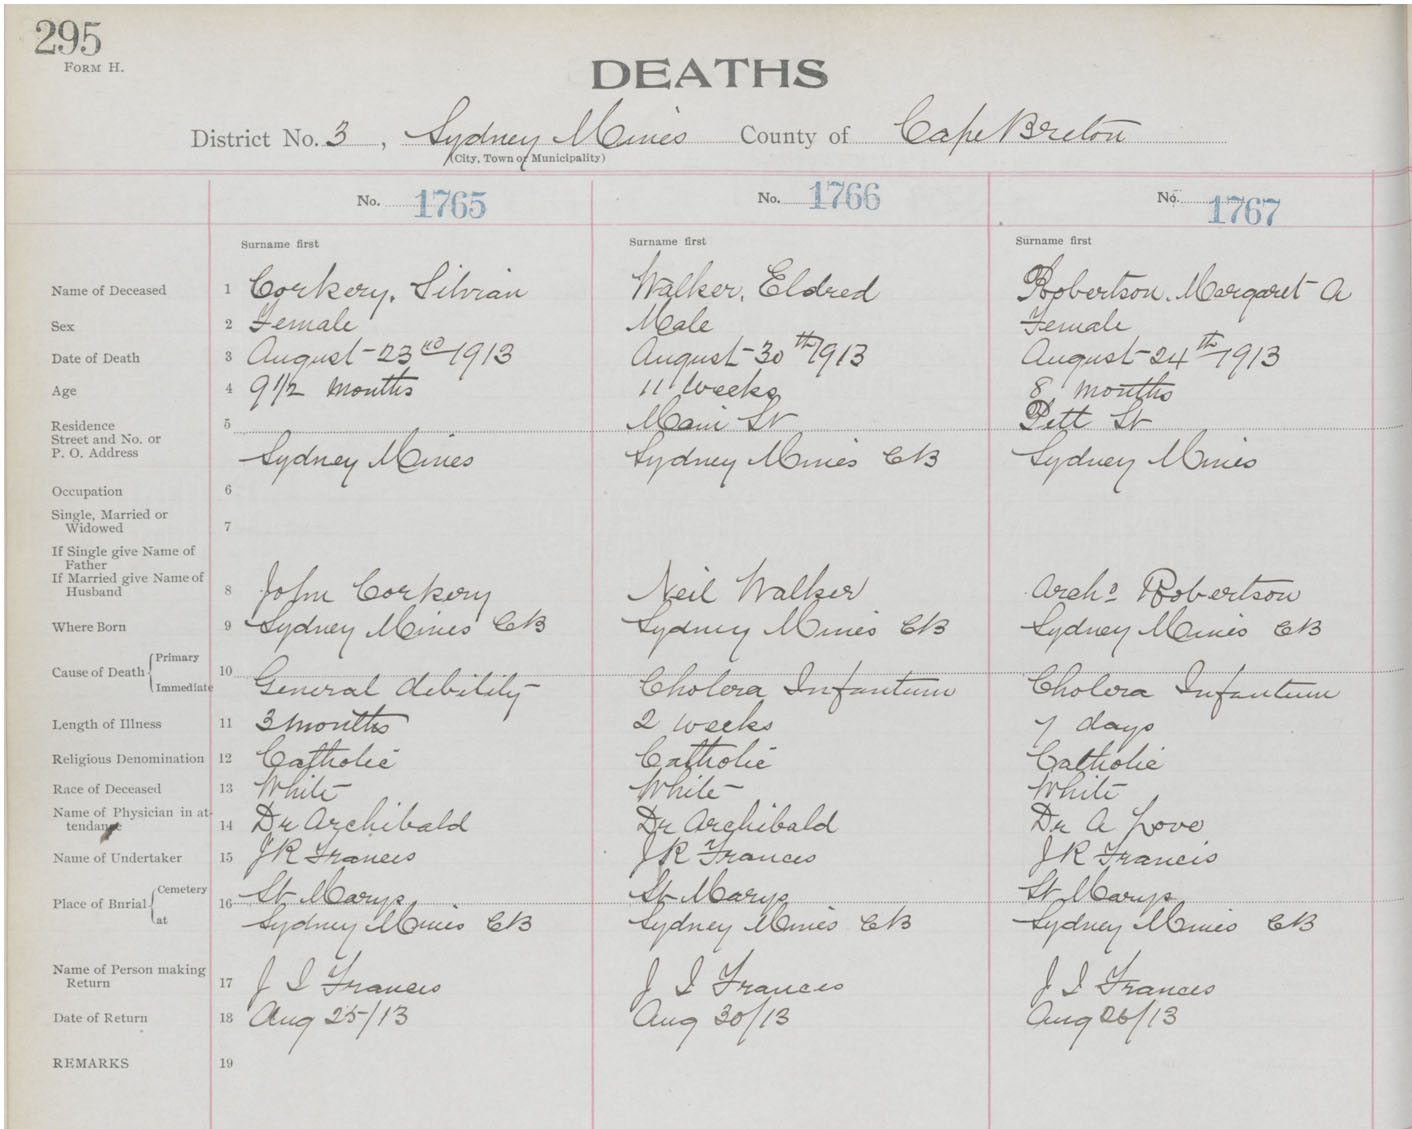 295
FORM H.
DEATHS
District No. 3, Sydney Mines County of Cape Breton
(City, Town or Municipality)
No. 1765 No. 1766 No. 1767
Surname first Surname first Surname first
Name of Deceased 1 Corkery, Silvian Walker, Eldred Robertson, Margaret A
Sex 2 Female Male Female
Date of Death 3 August 23rd 1913 August 30th 1913 August 24th 1913
Age 4 9 1/2 months 11 weeks 8 months
Residence 5 Main St Pitt St
Street and No. or
P. O. Address Sydney Mines Sydney Mines CB Sydney Mines
Occupation 6
Single, Married or
Widowed 7
If Single give Name of
Father
If Married give Name of
Husband 8 John Corkery Neil Walker Archd Robertson
Where Born 9 Sydney Mines CB Sydney Mines CB Sydney Mines CB
Primary
Cause of Death 10
Immediate General debility Cholera Infantum Cholera Infantum
Length of Illness 11 3 months 2 weeks 7 days
Religious Denomination 12 Catholic Catholic Catholic
Race of Deceased 13 White White White
Name of Physician in at-
tendance 14 Dr Archibald Dr Archibald Dr A Love
Name of Undertaker 15 J R Frances J R Frances J R Francis
Cemetery St Marys St Marys St Marys
Place of Burial 16
at Sydney Mines CB Sydney Mines CB Sydney Mines CB
Name of Person making
Return 17 J I Frances J I Frances J I Frances
Date of Return 18 Aug 25/13 Aug 30/13 Aug 26/13
REMARKS 19